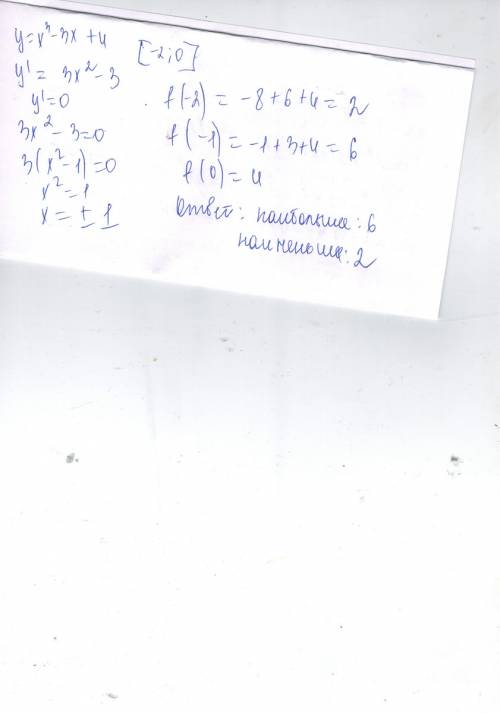 y=x³-3x+4
y' = 3x²-3
y'=0
3x²-3=0
3(x²-1)=0
x²=1
x=±1
[-2;0]
f(-2) = -8+6+4=2
f(-1)=-1+3+4=6
f(0)=4
Ответ: наибольша: 6
наименьша: 2